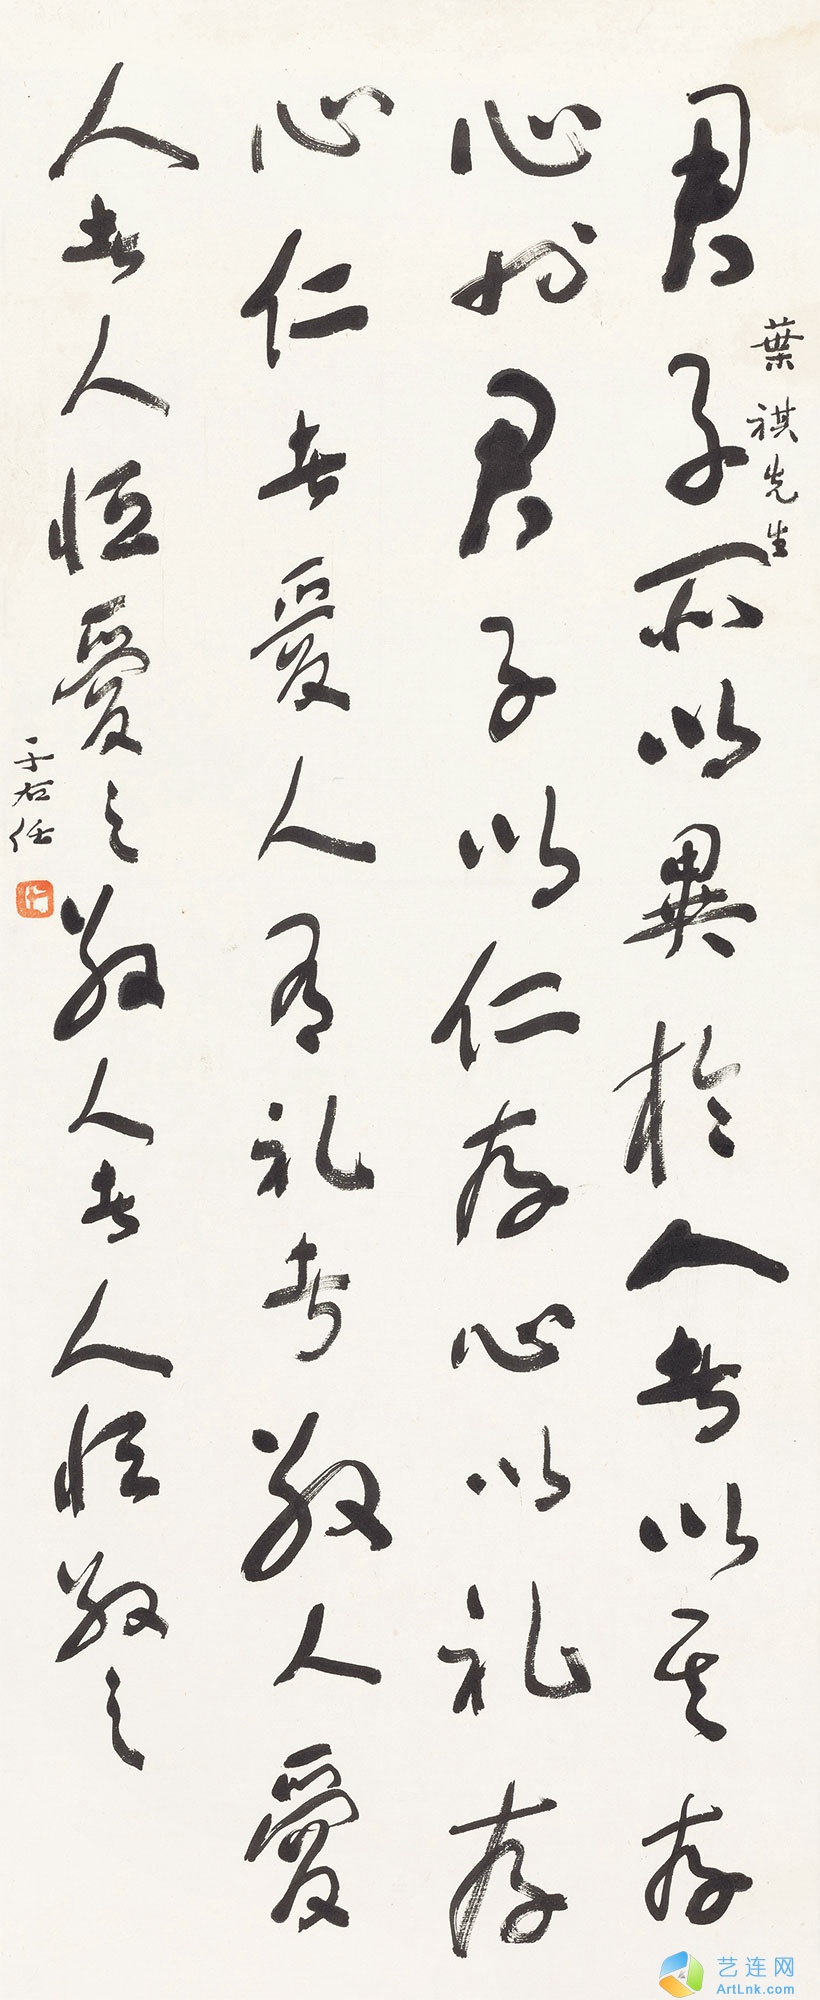 葉祺先生
君子所以異於人者以其存
心也君子以仁存心以礼存
心仁者愛人有礼者敬人愛
人者人恒愛之敬人者人恒敬之
于右任
艺连网
ArtLnk.com